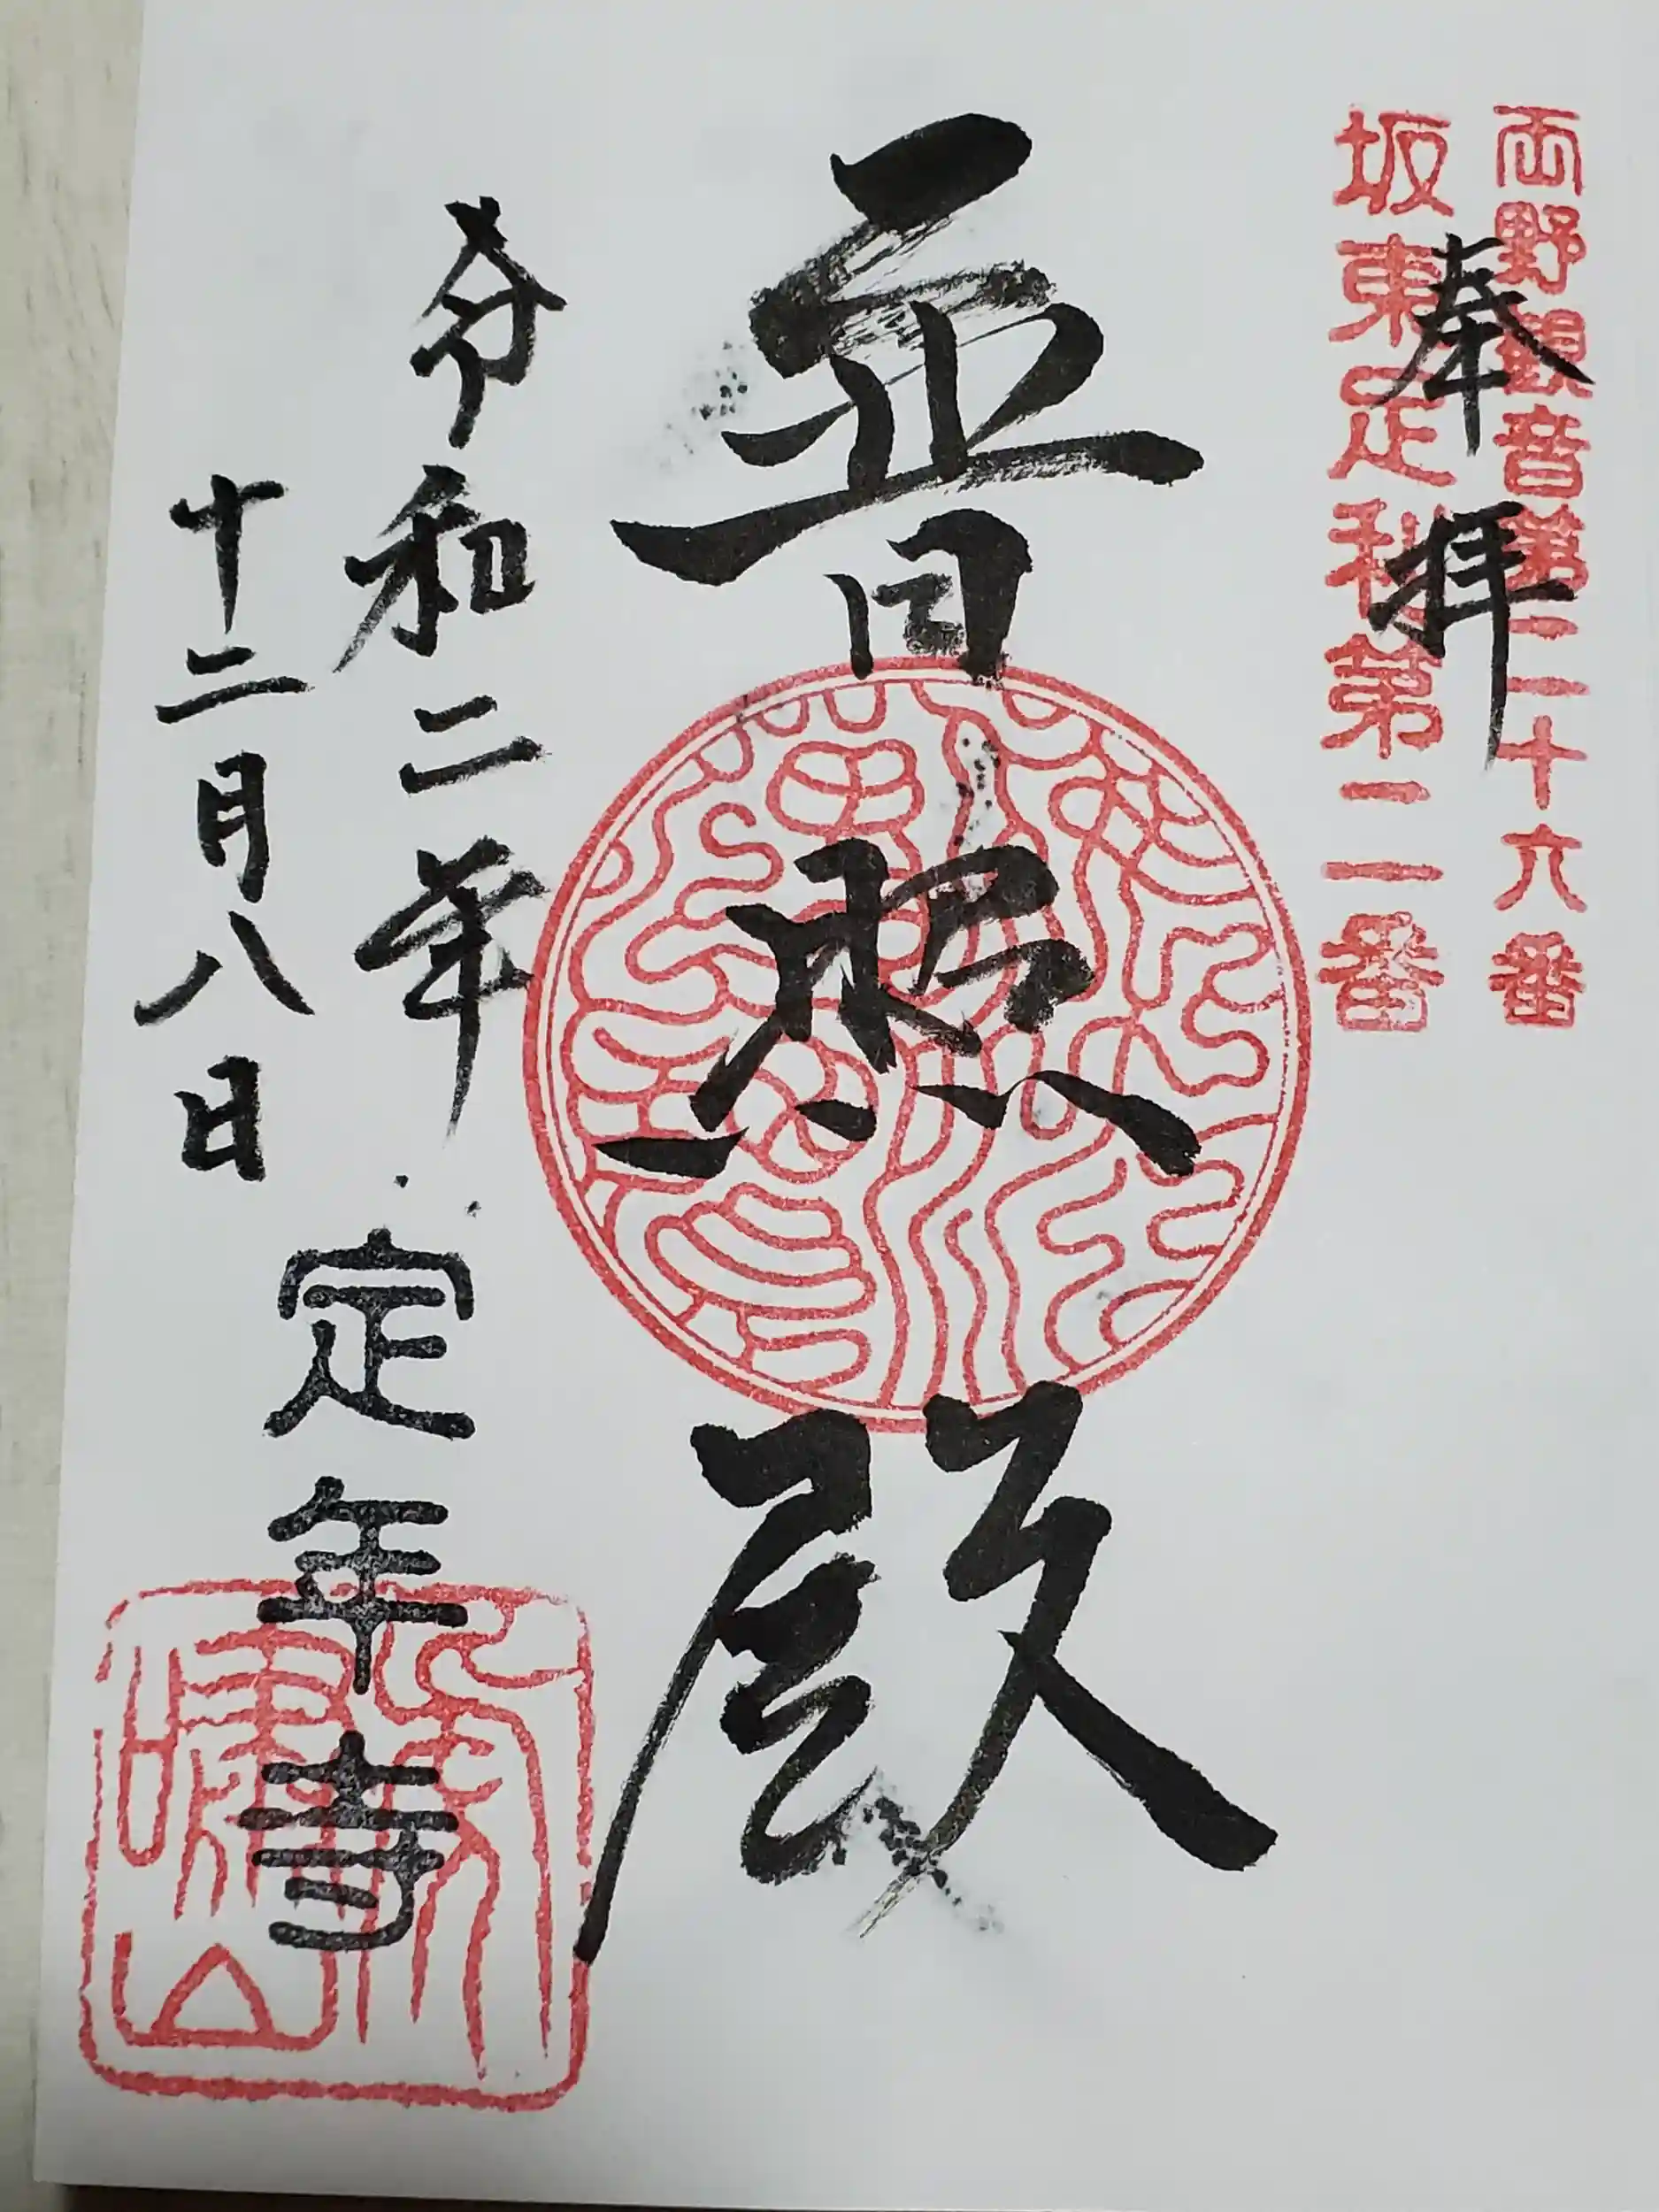 両野観音第二十六番
坂東足利第二番
奉拝
普照殿
令和二年
十二月八日
定年寺